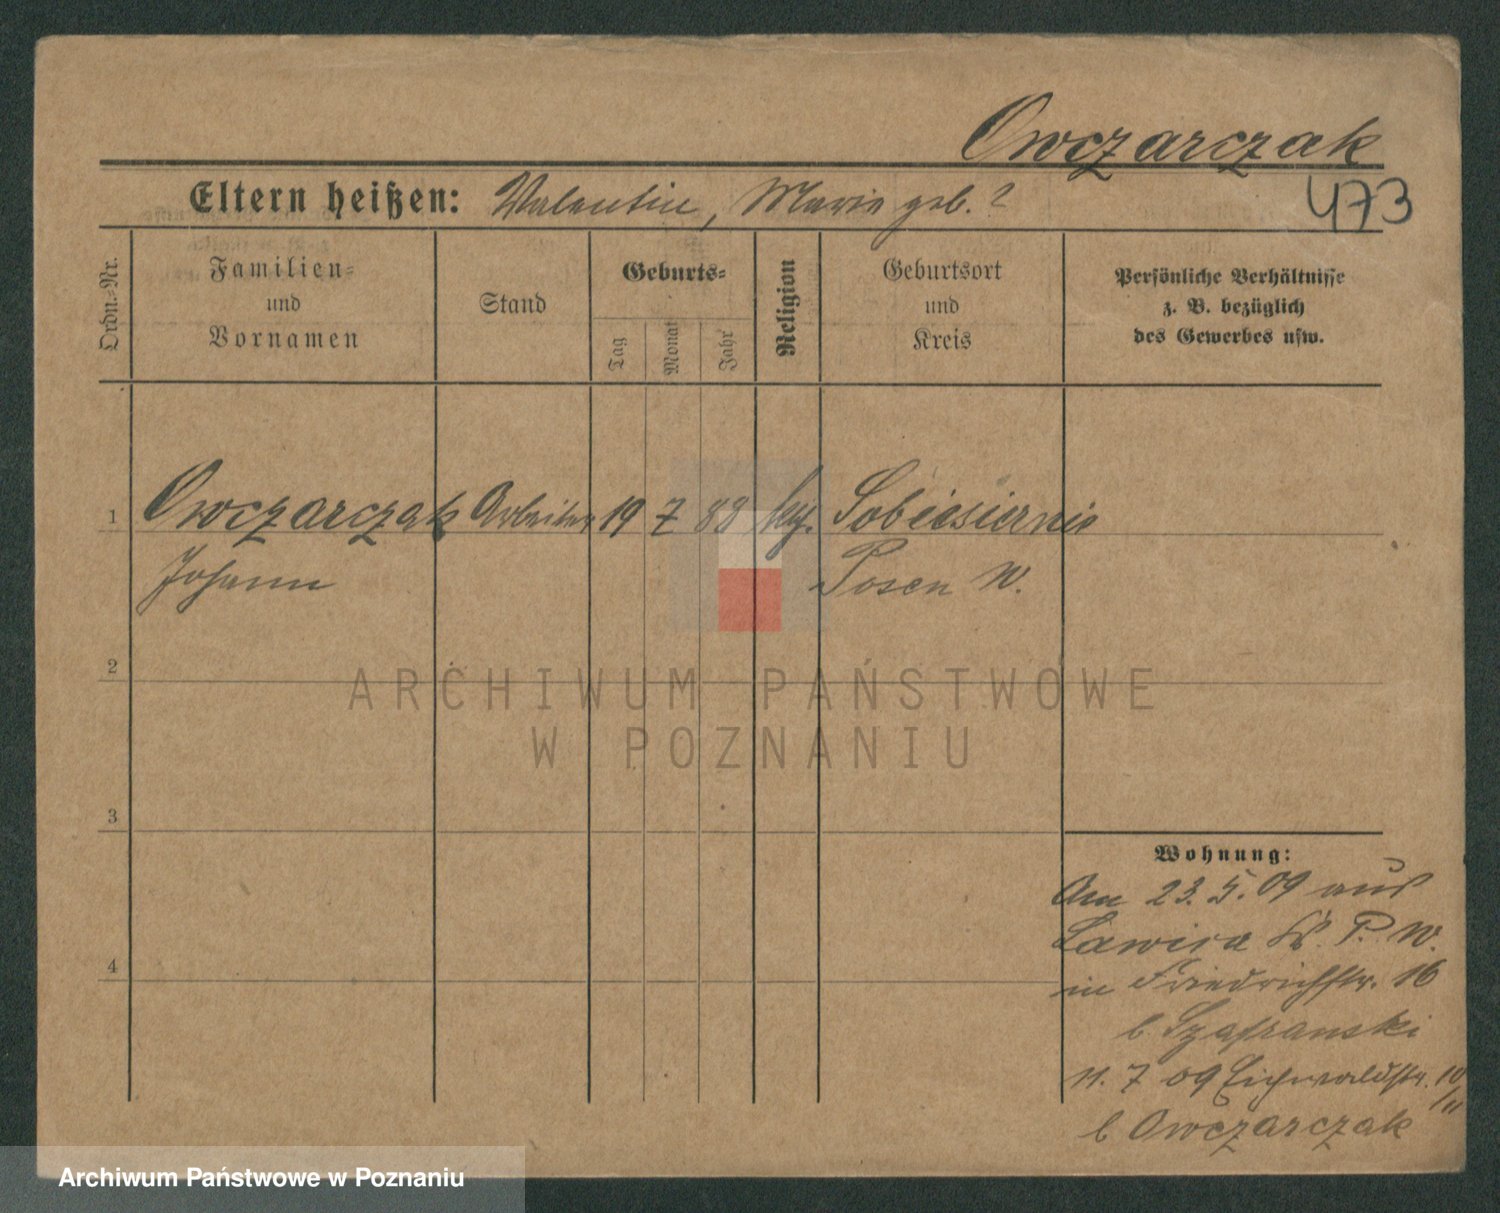 Owczarczak
Eltern heißen: Valentin, Marie geb. ?
473
Ordn.-Nr.
Familien-
und
Vornamen
Stand
Geburts-
Tag
Monat
Jahr
Religion
Geburtsort
und
Kreis
Persönliche Verhältnisse
z. B. bezüglich
des Gewerbes usw.
1 Owczarczak Arbeiter 19 7 88 Sobiesiernie
Johann Posen W.
2
3
4
Wohnung:
Am 23.5.09 aus
Lawica Kr. P. W.
in Friedrichstr. 16
b. Szafranski
11. 7 09 Eichwaldstr. 10/11
b Owczarczak
ARCHIWUM PAŃSTWOWE
W POZNANIU
Archiwum Państwowe w Poznaniu